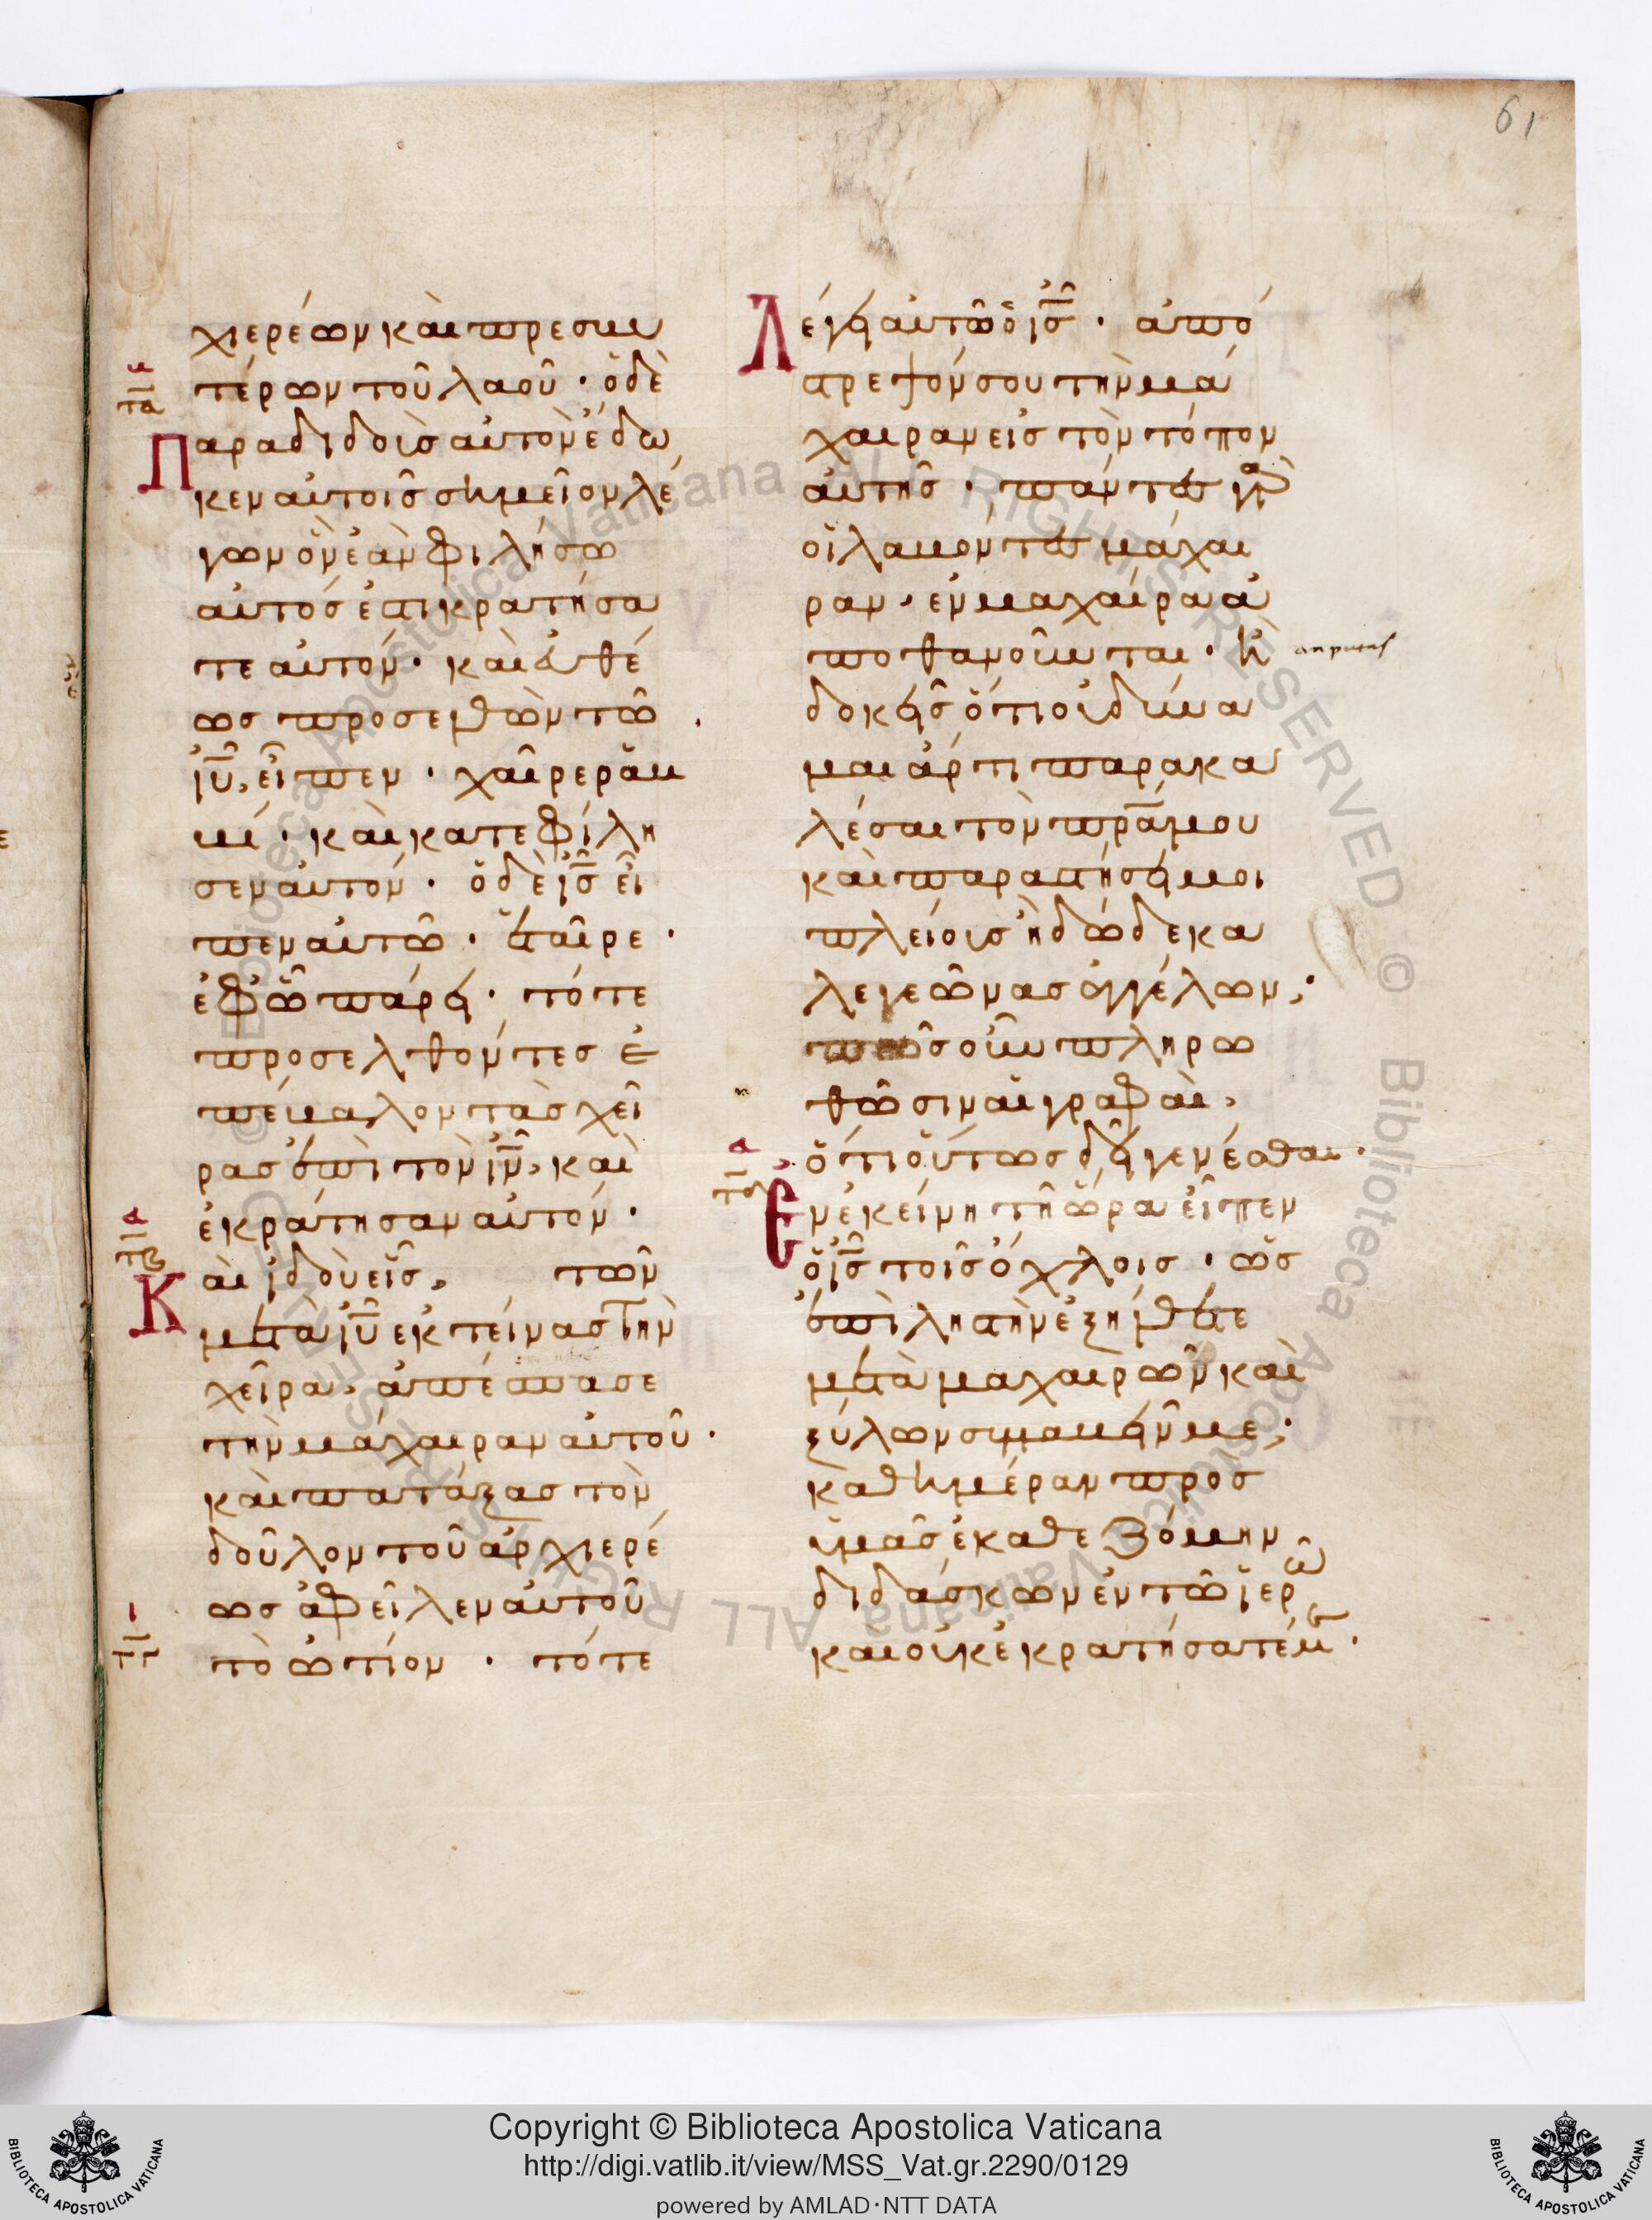 61
χιερέων καὶ πρεσβυ
τέρων τοῦ λαοῦ · ὁ δὲ
Παραδιδοὺσ αὐτὸν ἔδω
κεν αὐτοῖσ σημεῖον λέ
γων ὃν ἐὰν φιλήσω
αὐτόσ ἐστι κρατήσα
τε αὐτόν · καὶ εὐθέ
ωσ προσελθὼν τῶ
ἰ̅υ̅, εἶπεν · χαῖρε ῥαβ
βί · καὶ κατεφίλη
σεν αὐτόν · ὁ δὲ ἰ̅σ̅ εἶ
πεν αὐτῶ · ἑταῖρε ·
ἐφ ὧ πάρει · τότε
προσελθόντεσ ἐ
πέβαλον τὰσ χεῖ
ρασ ἐπὶ τὸν ἰ̅ν̅, καὶ
ἐκράτησαν αὐτόν ·
Καὶ ἰδοὺ εἷσ, τῶν
μετὰ ἰ̅υ̅ ἐκτείνασ τὴν
χεῖρα, ἀπέσπασε
τὴν μάχαιραν αὐτοῦ ·
καὶ πατάξασ τὸν
δοῦλον τοῦ ἀρχιερέ
ωσ ἀφεῖλεν αὐτοῦ
τὸ ὠτίον · τότε
Λέγει αὐτῶ ὁ ἰ̅σ̅ · ἀπό
στρεψόν σου τὴν μά
χαιραν εἰσ τὸν τόπον
αὐτῆσ · πάντεσ γὰρ
οἱ λαβόντεσ μάχαι
ραν, ἐν μαχαίρα ἀ
ποθανοῦνται · ἢ an putas
δοκεῖσ ὅτι οὐ δύνα
μαι ἄρτι παρακα
λέσαι τὸν π̅ρ̅α̅ μου
καὶ παραστήσει μοι
πλείουσ ἢ δώδεκα
λεγεῶνασ ἀγγέλων;
πῶσ οὖν πληρω
θῶσιν αἱ γραφαὶ,
ὅτι οὕτωσ δεῖ γενέσθαι ·
Ἐν ἐκείνη τῆ ὥρα εἶπεν
ὁ ἰ̅σ̅ τοῖσ ὄχλοισ · ὡσ
ἐπὶ ληστὴν ἐξήλθετε
μετὰ μαχαιρῶν καὶ
ξύλων συλλαβεῖν με;
καθ ἡμέραν προσ
ὑμᾶσ ἐκαθεζόμην
διδάσκων ἐν τῶ ἱερῶ
καὶ οὐκ ἐκρατήσατέ με ·
Copyright © Biblioteca Apostolica Vaticana
http://digi.vatlib.it/view/MSS_Vat.gr.2290/0129
powered by AMLAD·NTT DATA